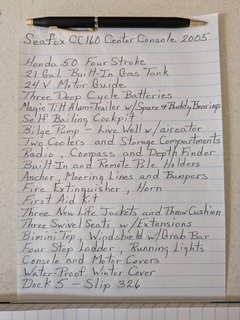 Seafox CC160 Center Console 2005
Honda 50 Four Stroke
21 Gal Built-In Gas Tank
24 V Motor Guide
Three Deep Cycle Batteries
Magic Tilt Alum-Trailer w/Spare & Buddy Bearings
Self Bailing Cockpit
Bilge Pump - Live Well w/aireator
Two Coolers and Storage Compartments
Radio, Compass and Depth Finder
Built In and Remote Pole Holders
Anchor, Mooring Lines and Bumpers
Fire Extinguisher, Horn
First Aid Kit
Three New Life Jackets and Throw Cushion
Three Swivel Seats w/Extensions
Bimini Top, Windshield w/Grab Bar
Four Step Ladder, Running Lights
Console and Motor Covers
Water-Proof Winter Cover
Dock 5 - Slip 326